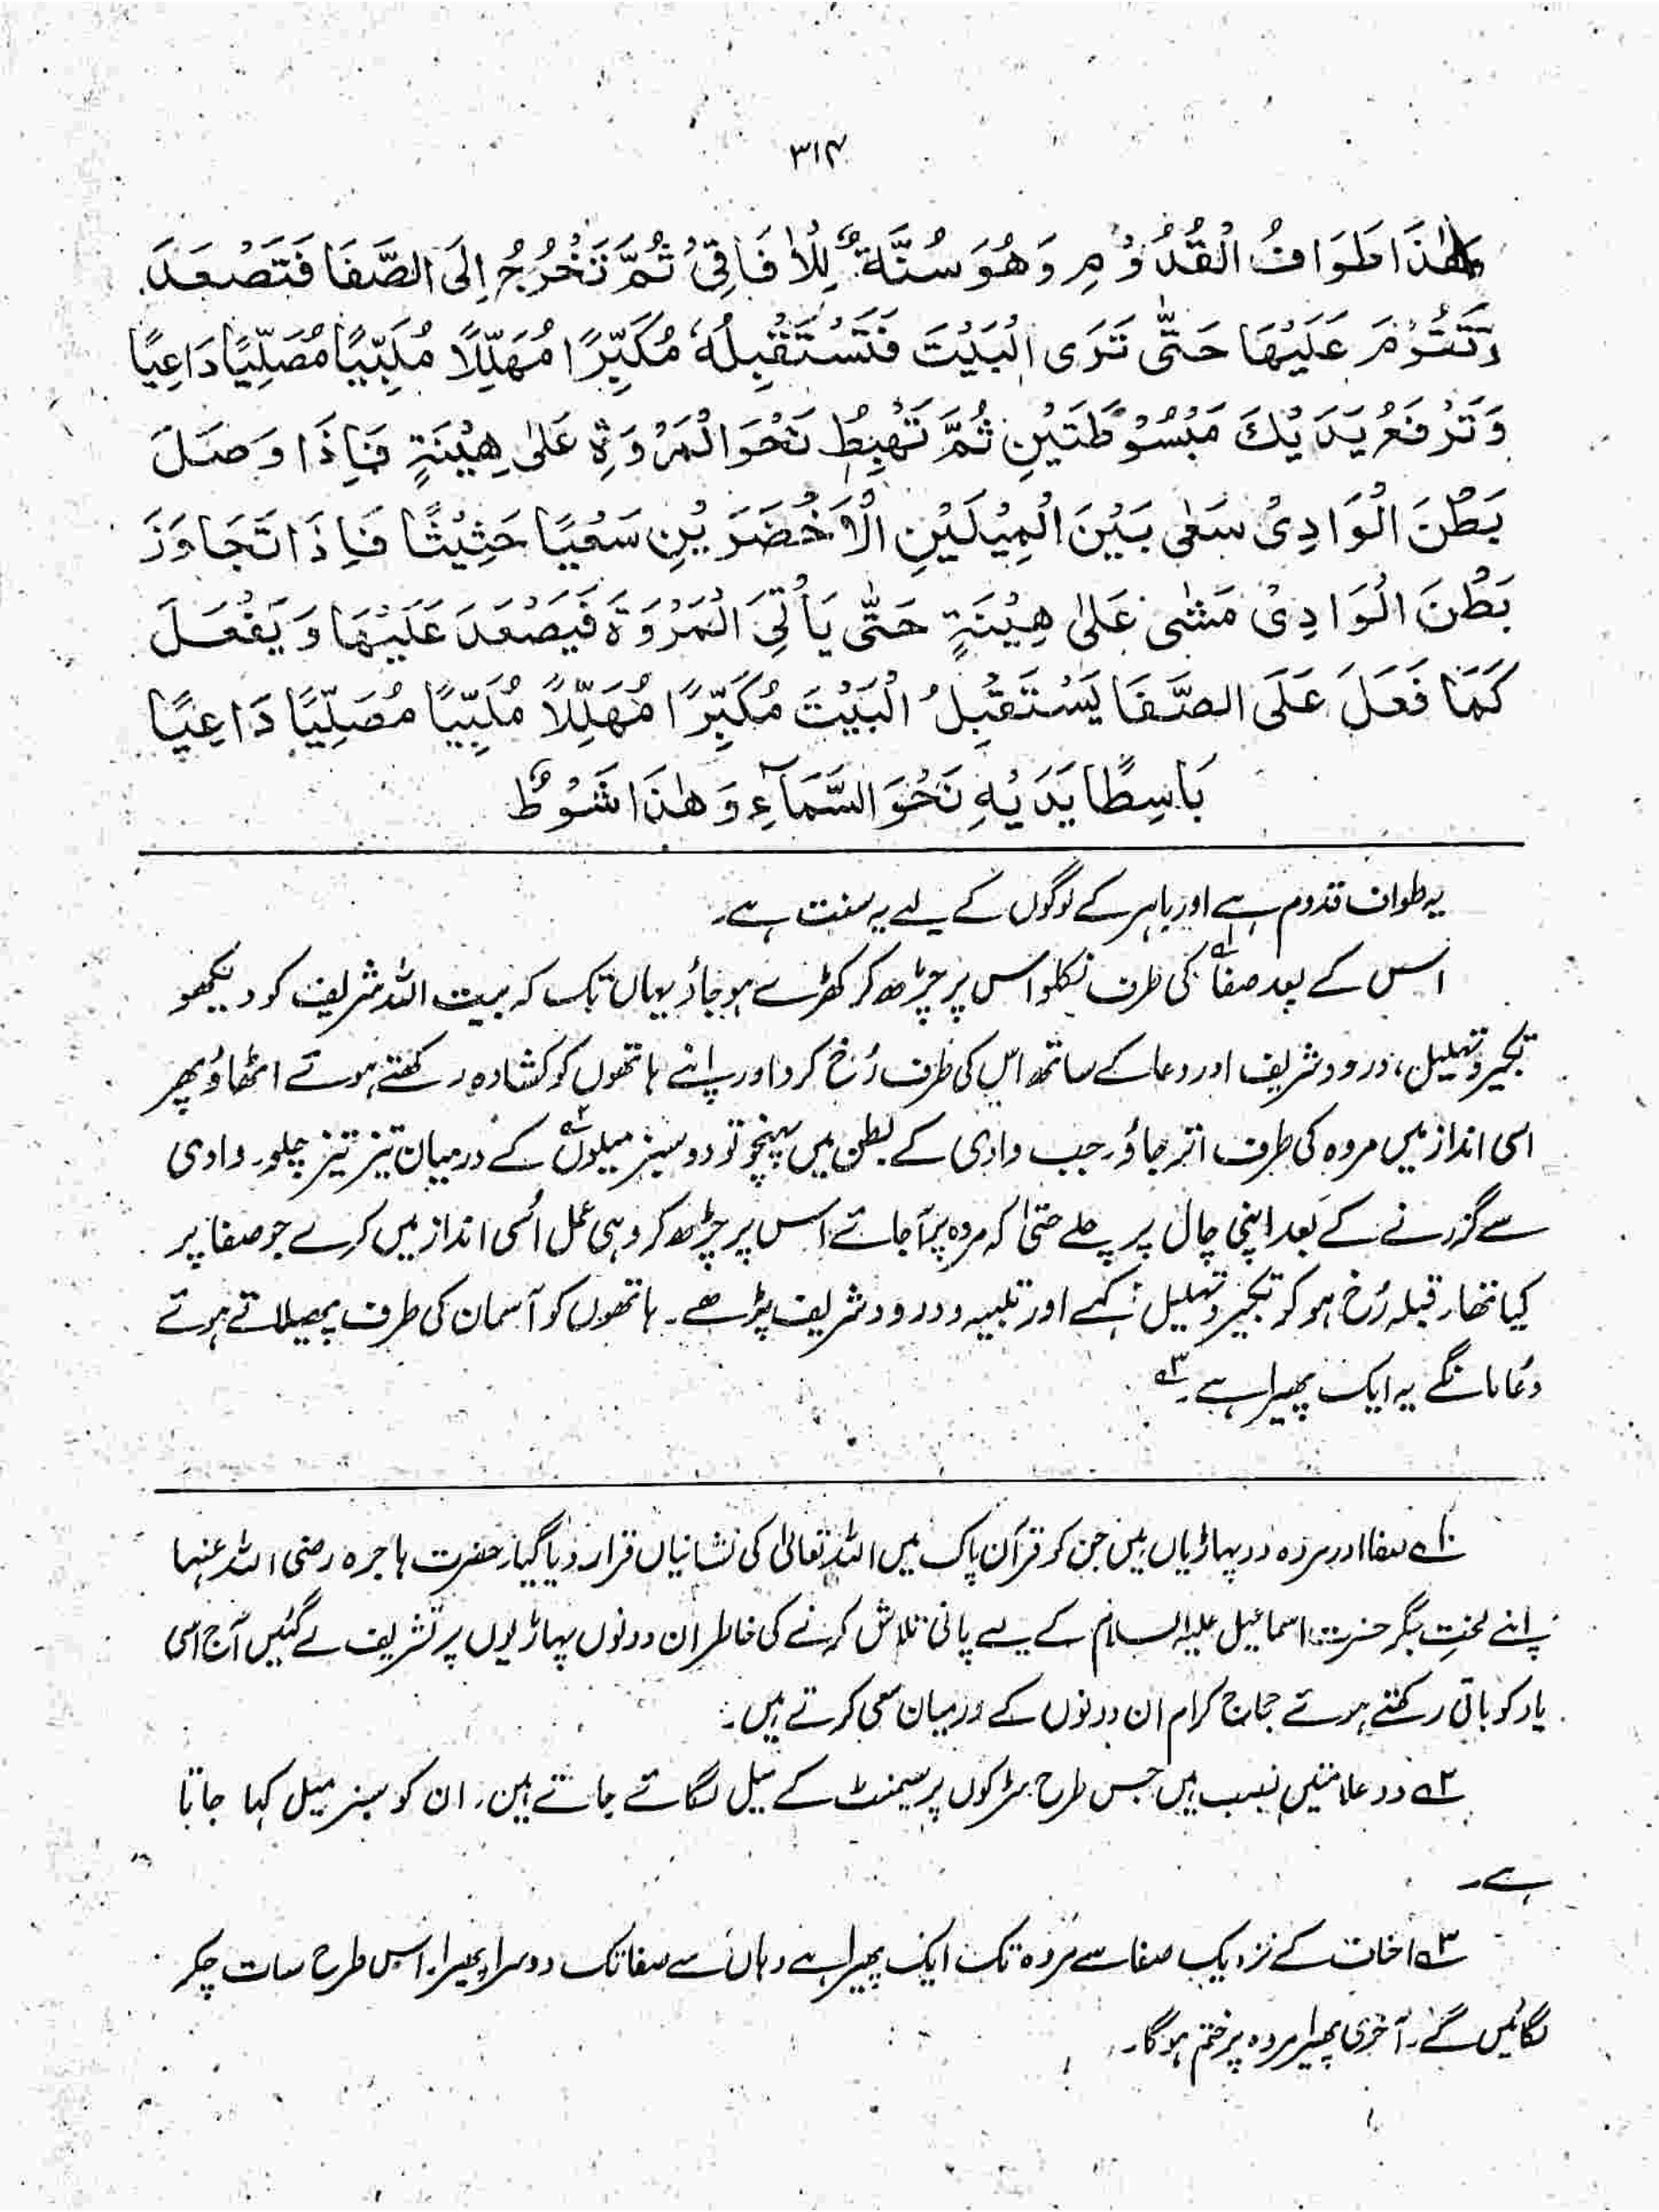 ۳۱۴
هٰذَا طَوَافُ الْقُدُوْمِ وَهُوَ سُنَّةٌ لِلْاٰفَاقِيِّ ثُمَّ تَخْرُجُ اِلَى الصَّفَا فَتَصْعَدَ
وَتَقُوْمَ عَلَيْهَا حَتّٰى تَرَى الْبَيْتَ فَتَسْتَقْبِلُهٗ مُكَبِّرًا مُهَلِّلًا مُلَبِّيًا مُصَلِّيًا دَاعِيًا
وَتَرْفَعُ يَدَيْكَ مَبْسُوْطَتَيْنِ ثُمَّ تَهْبِطُ نَحْوَ الْمَرْوَةِ عَلٰى هِيْنَةٍ فَاِذَا وَصَلَ
بَطْنَ الْوَادِىْ سَعٰى بَيْنَ الْمِيْلَيْنِ الْاَخْضَرَيْنِ سَعْيًا حَثِيْثًا فَاِذَا تَجَاوَزَ
بَطْنَ الْوَادِىْ مَشٰى عَلٰى هِيْنَةٍ حَتّٰى يَأْتِىَ الْمَرْوَةَ فَيَصْعَدَ عَلَيْهَا وَيَفْعَلَ
كَمَا فَعَلَ عَلَى الصَّفَا يَسْتَقْبِلُ الْبَيْتَ مُكَبِّرًا مُهَلِّلًا مُلَبِّيًا مُصَلِّيًا دَاعِيًا
بَاسِطًا يَدَيْهِ نَحْوَ السَّمَآءِ وَهٰذَا شَوْطٌ
یہ طواف قدوم ہے اور باہر کے لوگوں کے لیے یہ سنت ہے۔
اس کے بعد صفا۱؎ کی طرف نکلو اس پر چڑھ کر کھڑے ہو جاؤ یہاں تک کہ بیت اللہ شریف کو دیکھو
تکبیر و تہلیل، درود شریف اور دعا کے ساتھ اس کی طرف رُخ کرو اور اپنے ہاتھوں کو کشادہ رکھتے ہوئے اٹھاؤ پھر
اسی انداز میں مروہ کی طرف اتر جاؤ۔ جب وادی کے بطن میں پہنچو تو دو سبز میلوں۲؎ کے درمیان تیز تیز چلو۔ وادی
سے گزرنے کے بعد اپنی چال پر چلے حتیٰ کہ مروہ پر آجائے اس پر چڑھ کر وہی عمل اُسی انداز میں کرے جو صفا پر
کیا تھا۔ قبلہ رُخ ہو کر تکبیر و تہلیل کہے اور تلبیہ و درود شریف پڑھے۔ ہاتھوں کو آسمان کی طرف پھیلاتے ہوئے
دُعا مانگے یہ ایک پھیرا ہے۔۳؎
۱؎ صفا اور مروہ دو پہاڑیاں ہیں جن کو قرآن پاک میں اللہ تعالیٰ کی نشانیاں قرار دیا گیا۔ حضرت ہاجرہ رضی اللہ عنہا
اپنے لختِ جگر حضرت اسماعیل علیہ السلام کے لیے پانی تلاش کرنے کی خاطر ان دونوں پہاڑیوں پر تشریف لے گئیں آج اسی
یاد کو باقی رکھتے ہوئے حجاج کرام ان دونوں کے درمیان سعی کرتے ہیں۔
۲؎ دو علامتیں نصب ہیں جس طرح سڑکوں پر سیمنٹ کے میل لگائے جاتے ہیں۔ ان کو سبز میل کہا جاتا
ہے۔
۳؎ احناف کے نزدیک صفا سے مروہ تک ایک پھیرا ہے وہاں سے صفا تک دوسرا پھیرا۔ اس طرح سات چکر
لگائیں گے۔ آخری پھیرا مروہ پر ختم ہوگا۔